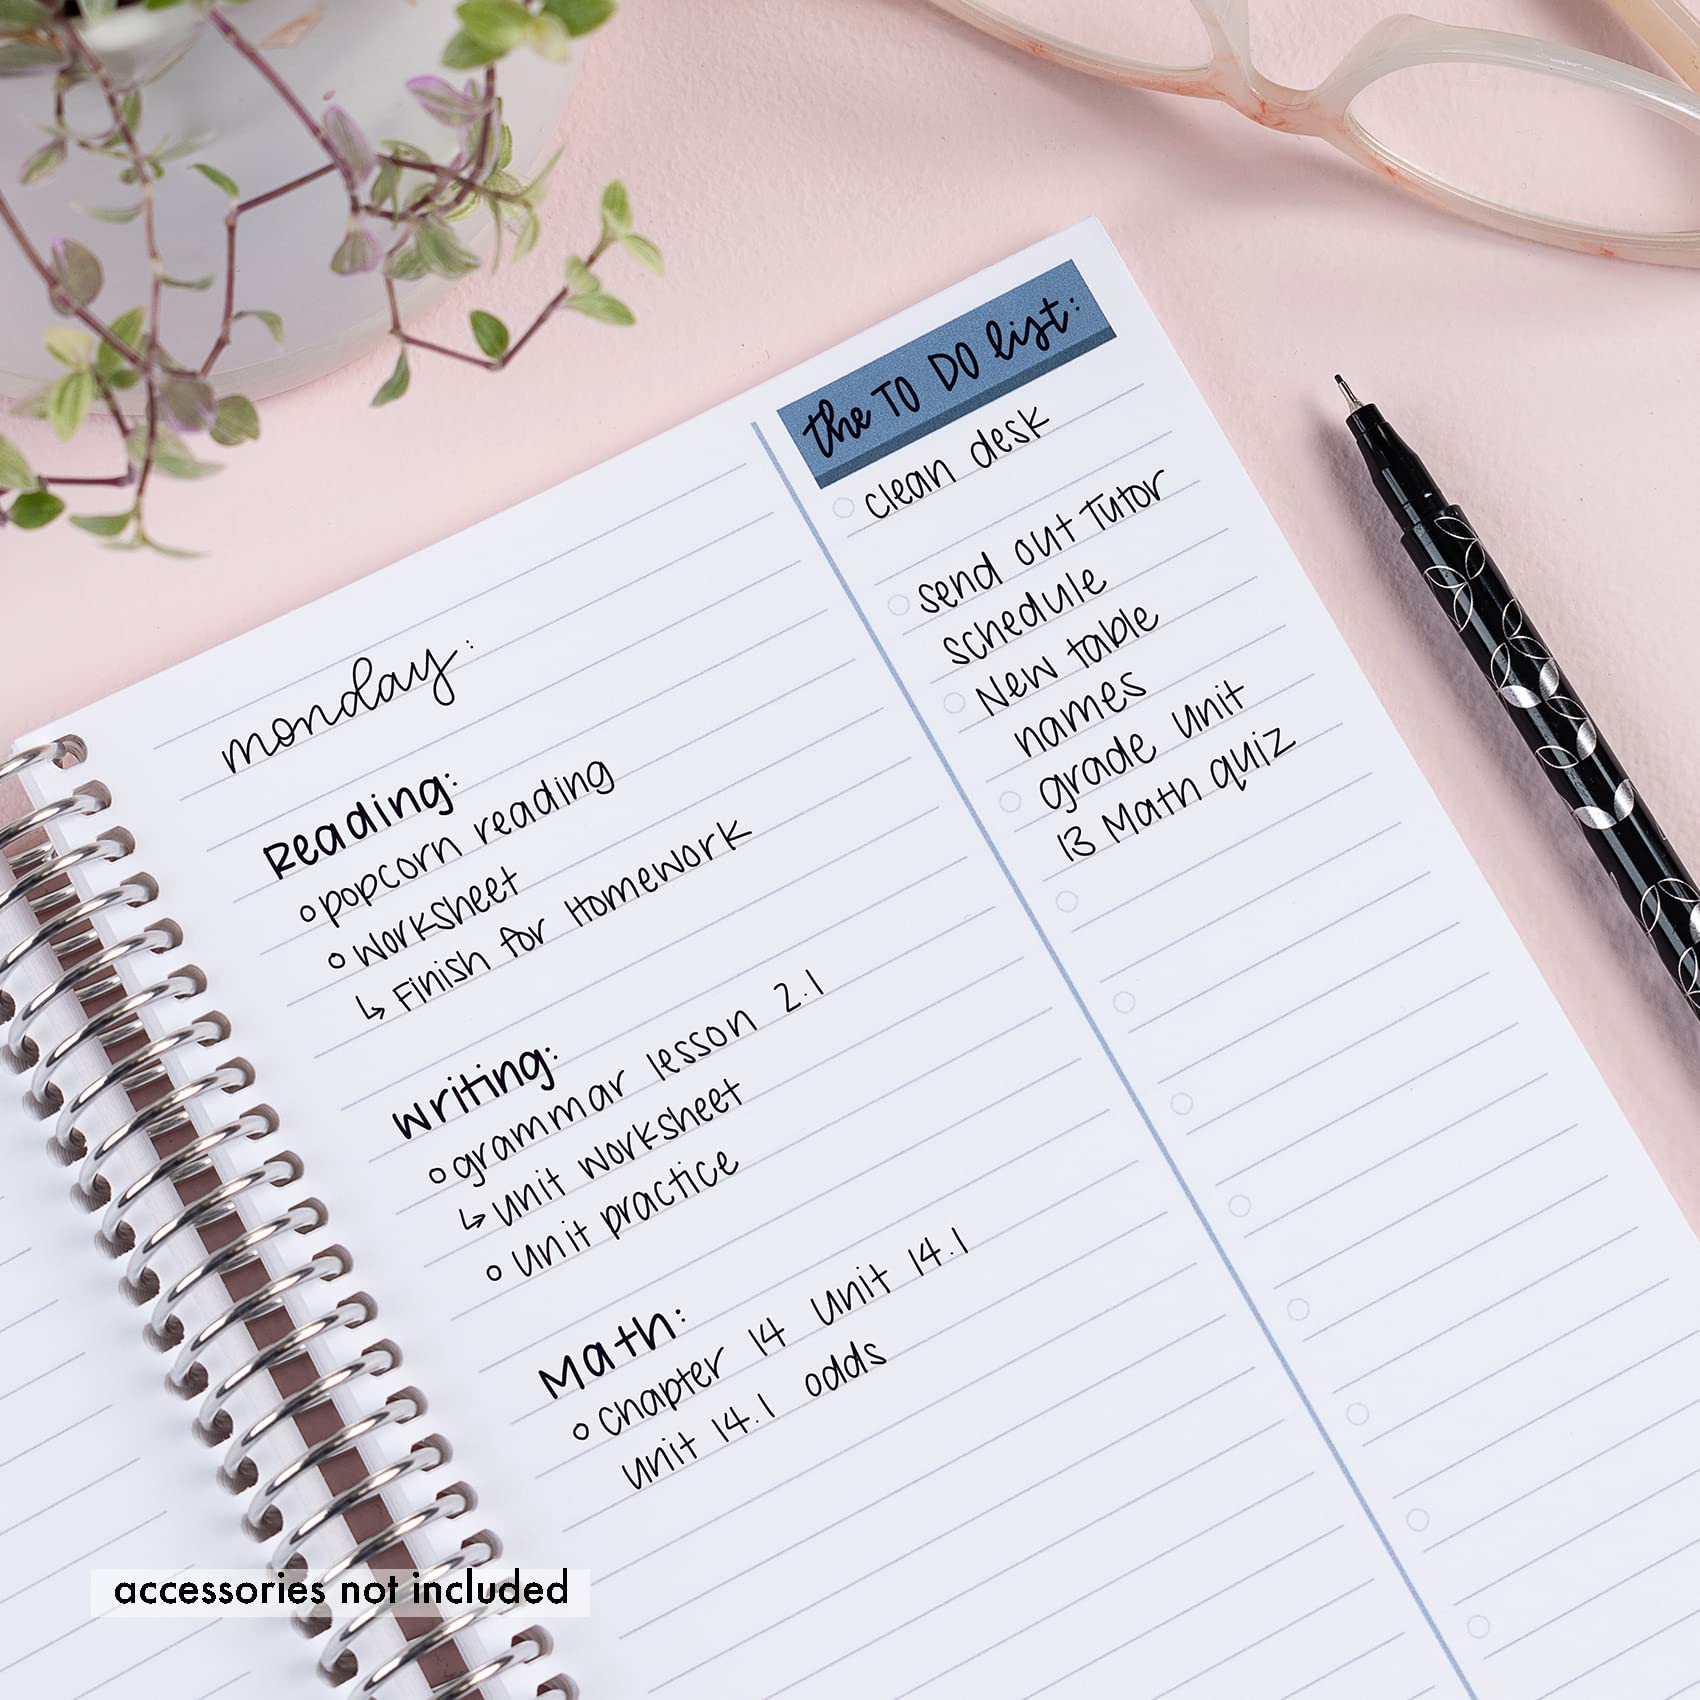 monday:
Reading:
popcorn reading
worksheet
↳ Finish for Homework
writing:
grammar lesson 2.1
↳ unit worksheet
unit practice
Math:
Chapter 14 unit 14.1
unit 14.1 odds
the TO DO list:
clean desk
send out Tutor
schedule
New table
names
grade unit
13 Math quiz
accessories not included